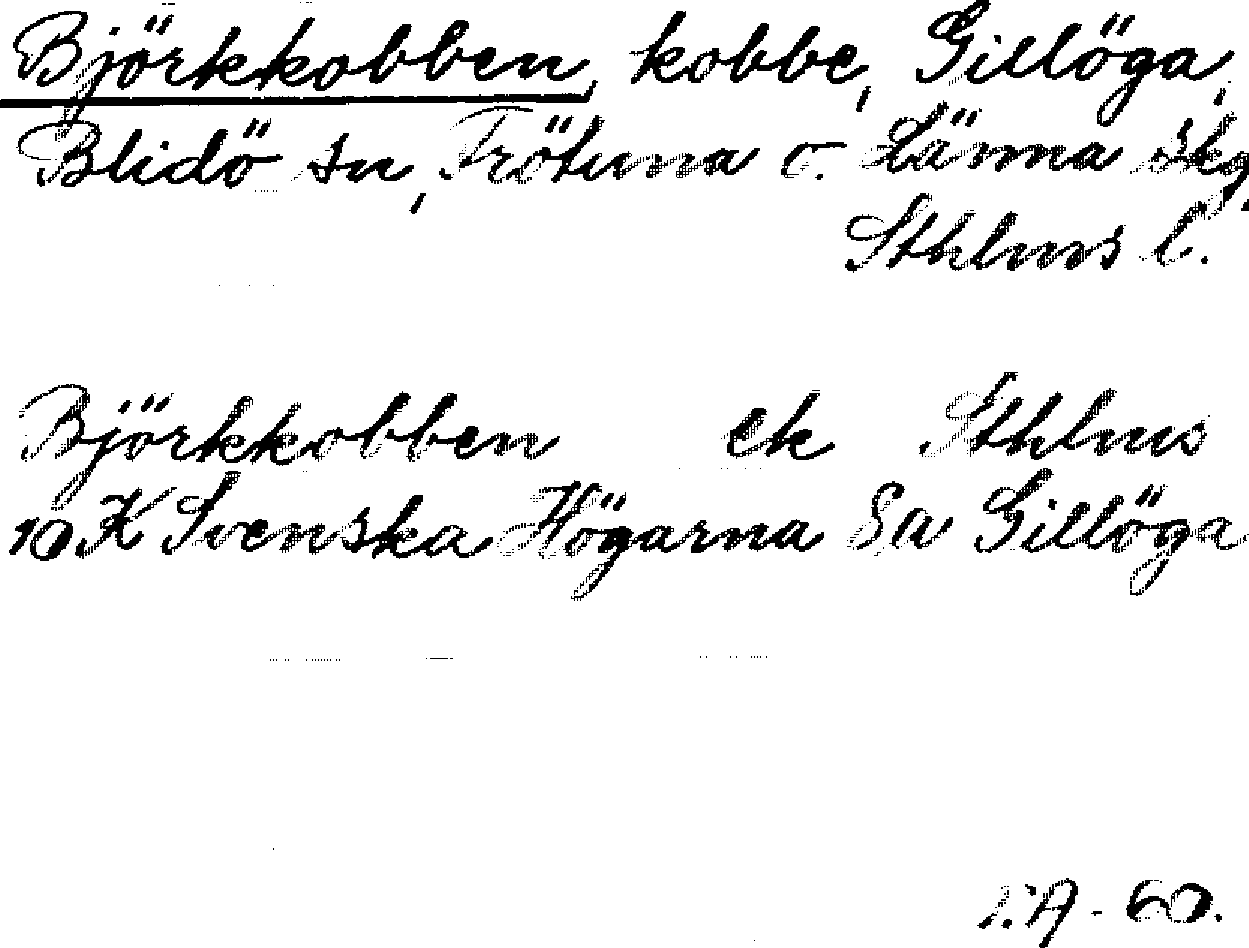 Björkkobben, kobbe, Gillöga,
Blidö sn, Frötuna o. Länna skg,
Sthlms l.
Björkkobben ek Sthlms
10 K Svenska Högarna Sa Gillöga
A - 60.